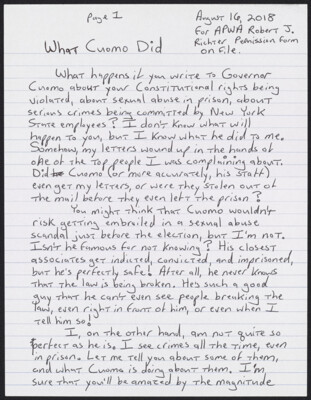 Page 1
August 16, 2018
For APWA Robert J.
Richter Permission Form
on File.
What Cuomo Did
What happens if you write to Governor
Cuomo about your Constitutional rights being
violated, about sexual abuse in prison, about
serious crimes being committed by New York
State employees? I don't know what will
happen to you, but I know what he did to me.
Somehow, my letters wound up in the hands of
one of the top people I was complaining about.
Did Cuomo (or more accurately, his staff)
even get my letters, or were they stolen out of
the mail before they even left the prison?
You might think that Cuomo wouldn't
risk getting embroiled in a sexual abuse
scandal just before the election, but I'm not.
Isn't he famous for not knowing? His closest
associates get indicted, convicted, and imprisoned,
but he's perfectly safe! After all, he never knows
that the law is being broken. He's such a good
guy that he can't even see people breaking the
law, even right in front of him, or even when I
tell him so!
I, on the other hand, am not quite so
perfect as he is. I see crimes all the time, even
in prison. Let me tell you about some of them,
and what Cuomo is doing about them. I'm
sure that you'll be amazed by the magnitude